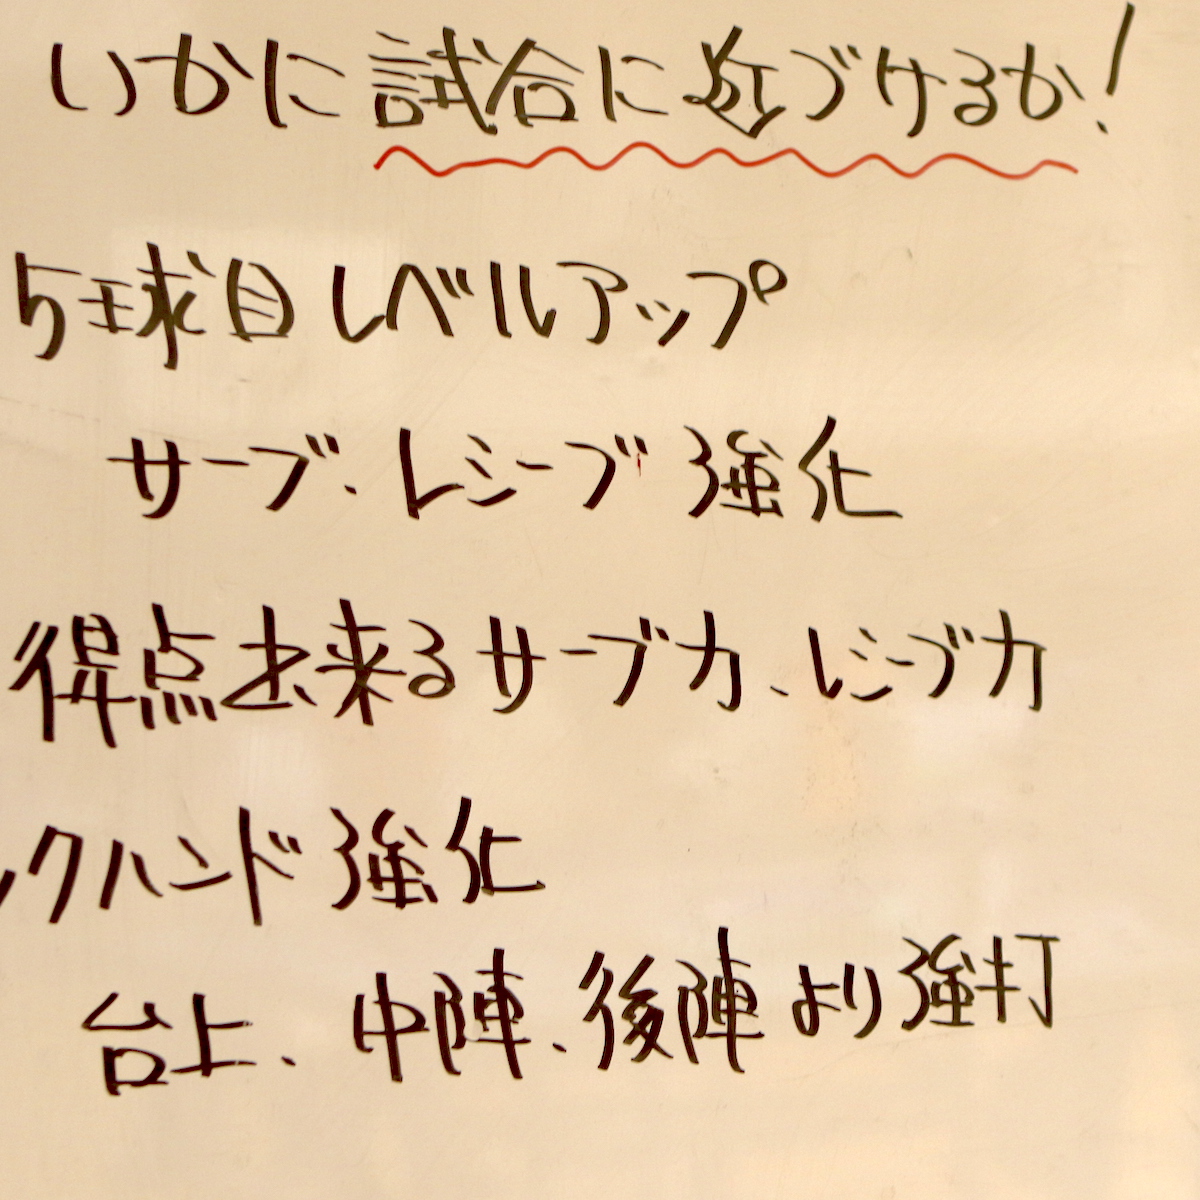 いかに試合に近づけるか!
5球目レベルアップ
サーブ、レシーブ強化
得点出来るサーブ力、レシーブ力
ックハンド強化
台上、中陣、後陣より強打